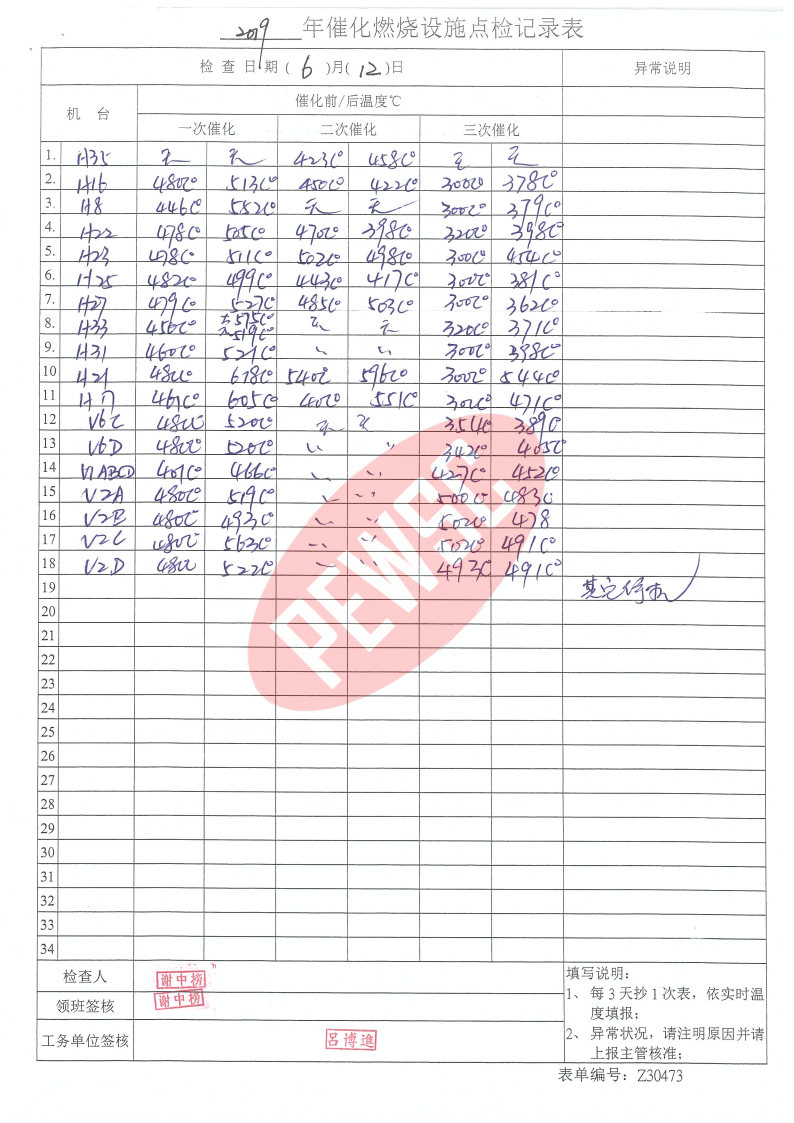 2019 年催化燃烧设施点检记录表
检 查 日 期 ( 6 )月( 12 )日 异常说明
机 台 催化前/后温度℃
一次催化 二次催化 三次催化
1. H35 无 无 423C° 458C° 无 无
2. H16 480C° 513C° 450C° 422C° 300C° 378C°
3. H8 446C° 552C° 无 无 300C° 379C°
4. H22 478C° 505C° 470C° 398C° 320C° 398C°
5. H23 478C° 511C° 502C° 498C° 300C° 454C°
6. H25 482C° 499C° 443C° 417C° 300C° 381C°
7. H27 479C° 527C° 485C° 503C° 300C° 362C°
8. H33 456C° 左575C° 右519C° 无 无 320C° 371C°
9. H31 460C° 521C° 〃 〃 300C° 398C°
10 H21 480C° 678C° 540C° 596C° 300C° 544C°
11 H17 461C° 605C° 551C° 300C° 471C°
12 V6C 480C° 520C° 无 无 354C° 389C°
13 V6D 480C° 520C° 〃 〃 342C° 405C°
14 V1ABCD 401C° 466C° 〃 〃 427C° 452C°
15 V2A 480C° 519C° 〃 〃 500C° 483C°
16 V2B 480C° 493C° 〃 〃 502C° 478
17 V2C 480C° 563C° 〃 〃 502C° 491C°
18 V2D 480C° 522C° 〃 〃 493C° 491C°
19 其它停机
20
21
22
23
24
25
26
27
28
29
30
31
32
33
34
PEWSC
检查人 谢中榜
领班签核 谢中榜
工务单位签核 吕博進
填写说明:
1、 每 3 天抄 1 次表，依实时温
度填报;
2、 异常状况，请注明原因并请
上报主管核准;
表单编号: Z30473